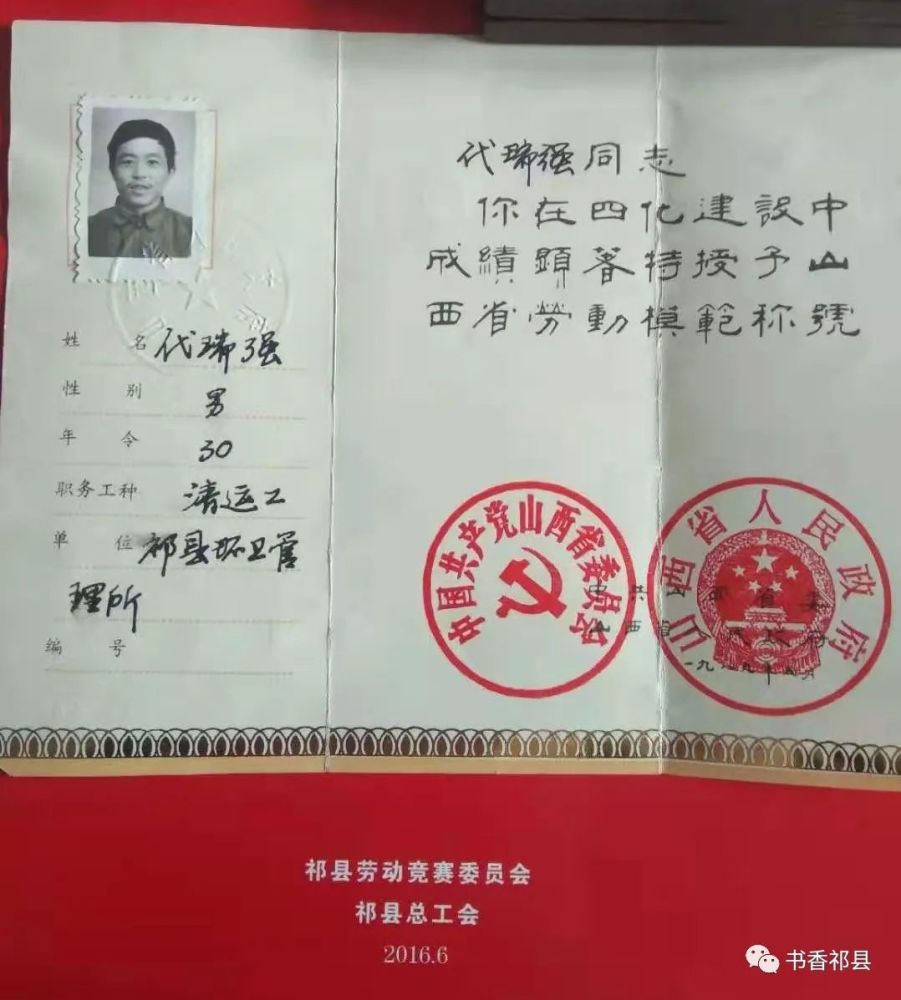 姓 名 代瑞强
性 别 男
年 令 30
职务工种 清运工
单 位 祁县环卫管
理所
编 号
代瑞强同志
你在四化建設中
成績顕著特授予山
西省労動模範称號
中国共产党山西省委员会
山西省人民政府
中共山西省委
山西省人民政府
一九八九年
祁县劳动竞赛委员会
祁县总工会
2016.6
书香祁县